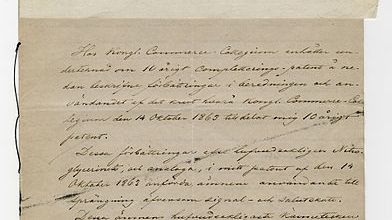 Hos Kongl. Commerce-Collegium anhåller un-
dertecknad om 10 årigt Completterings-patent å ne-
dan beskrifne förbättringar i beredningen och an-
vändandet af det krut hvarå Kongl. Commerce-Col-
legium den 14 Oktober 1863 tilldelat mig 10 årigt
patent.
Dessa förbättringar afse hufvudsakligen Nitro-
glycerinet, och analoga, i mitt patent af den 14
Oktober 1863 anförda ämnens användande till
sprängning äfvensom signal- och salutskott.
Dessa ämnens hufvudsakligaste kännetecken